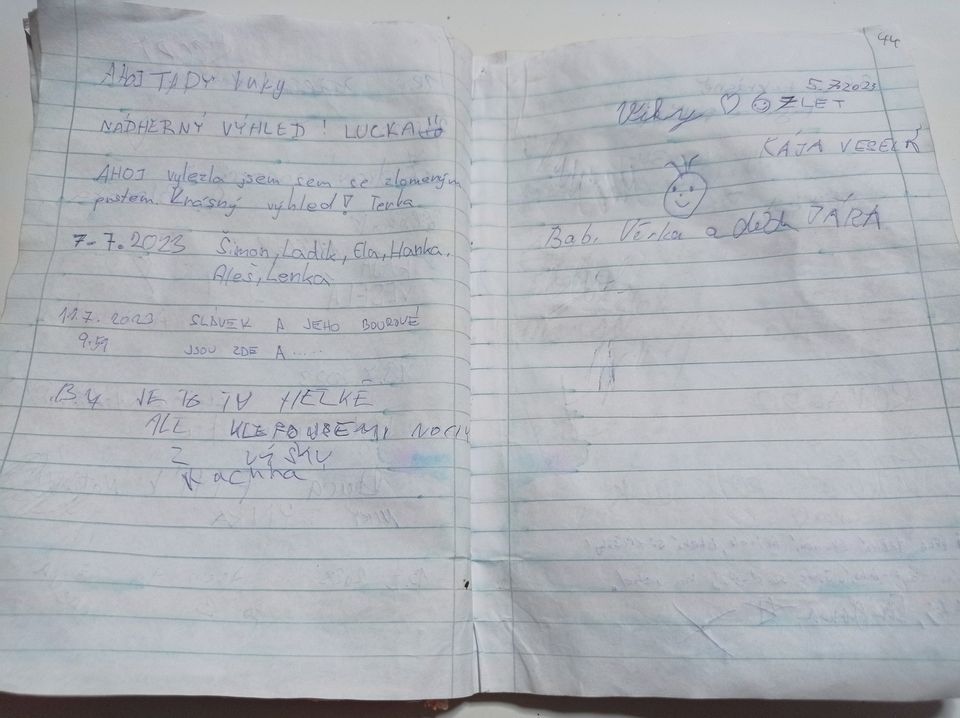 AHOJ TADY Luky
NÁDHERNÝ VÝHLED! LUCKA
AHOJ vylezla jsem sem se zlomeným
prstem. Krásný výhled! Terka
7.7.2023 Šimon, Ladik, Ela, Hanka,
Aleš, Lenka
11.7.2023 SLÁVEK A JEHO BOUROVÉ
9:59 JSOU ZDE A.....
JE TO TU HEZKÉ
KLEPOU SE MI NOHY
Z VÝŠKY
Kachna
44
5.7.2023
Viky ♡ 7 LET
KÁJA VESELÁ
Bab. Věrka a děda JÁRA